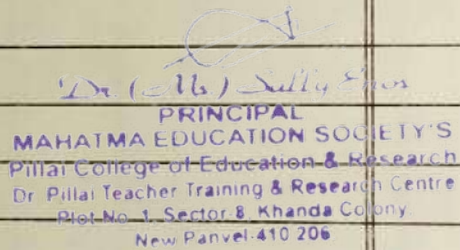 Dr. (Ms.) Sally Enos
PRINCIPAL
MAHATMA EDUCATION SOCIETY'S
Pillai College of Education & Research
Dr. Pillai Teacher Training & Research Centre
Plot No. 1, Sector-8, Khanda Colony
New Panvel-410 206